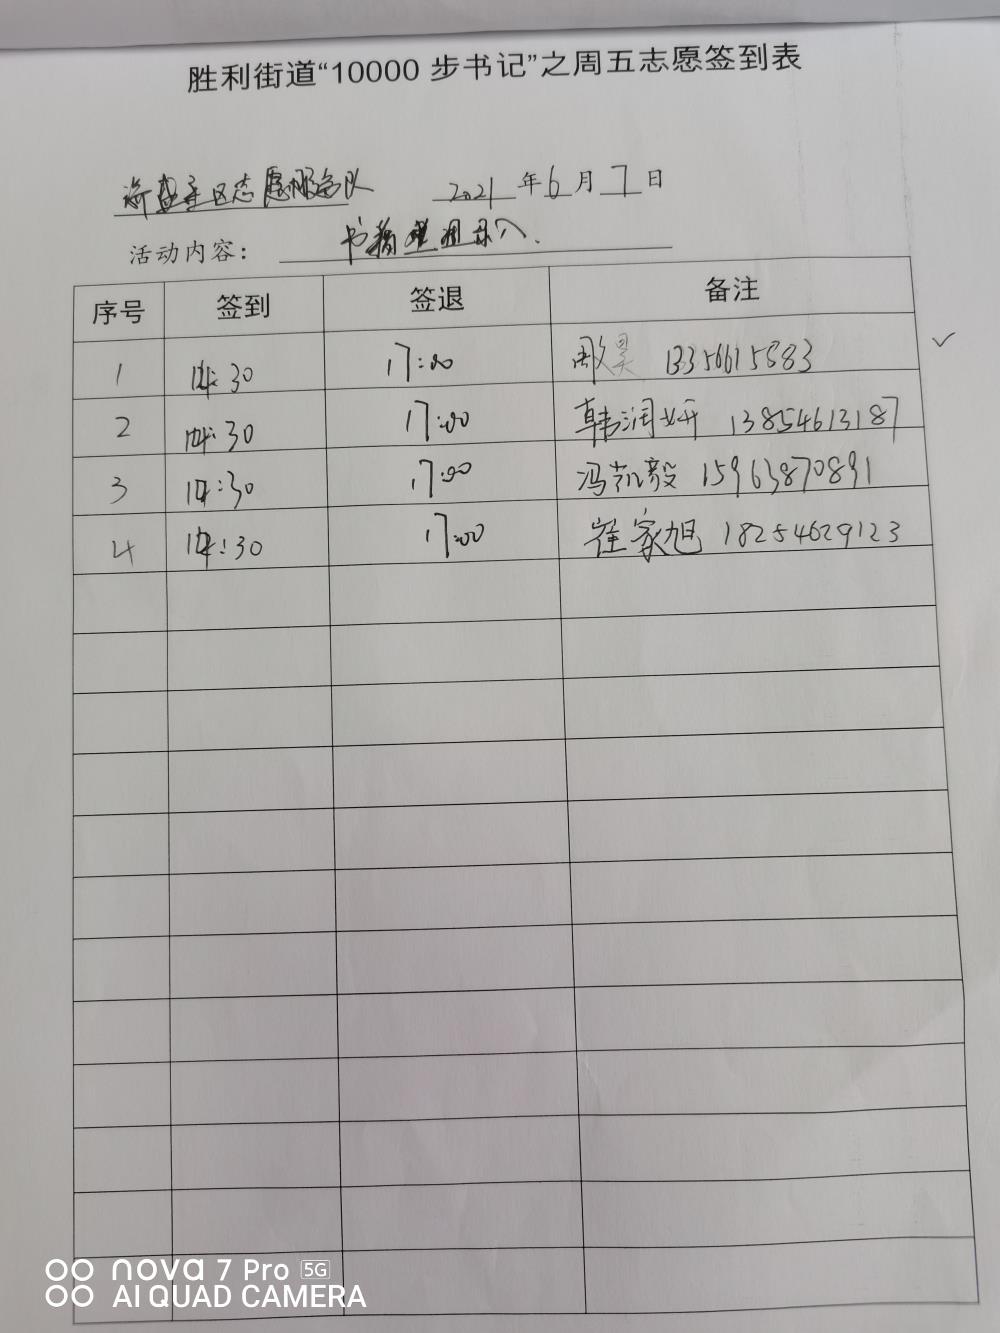 胜利街道“10000 步书记”之周五志愿签到表
区志愿服务队 2021 年 6 月 7 日
活动内容： 书籍整理录入.
序号 签到 签退 备注
1 14:30 17:00 昊 13356615583
2 14:30 17:00 韩润妍 13854613187
3 14:30 17:00 冯凯毅 15963870891
4 14:30 17:00 崔家旭 18254629123
nova 7 Pro 5G
AI QUAD CAMERA